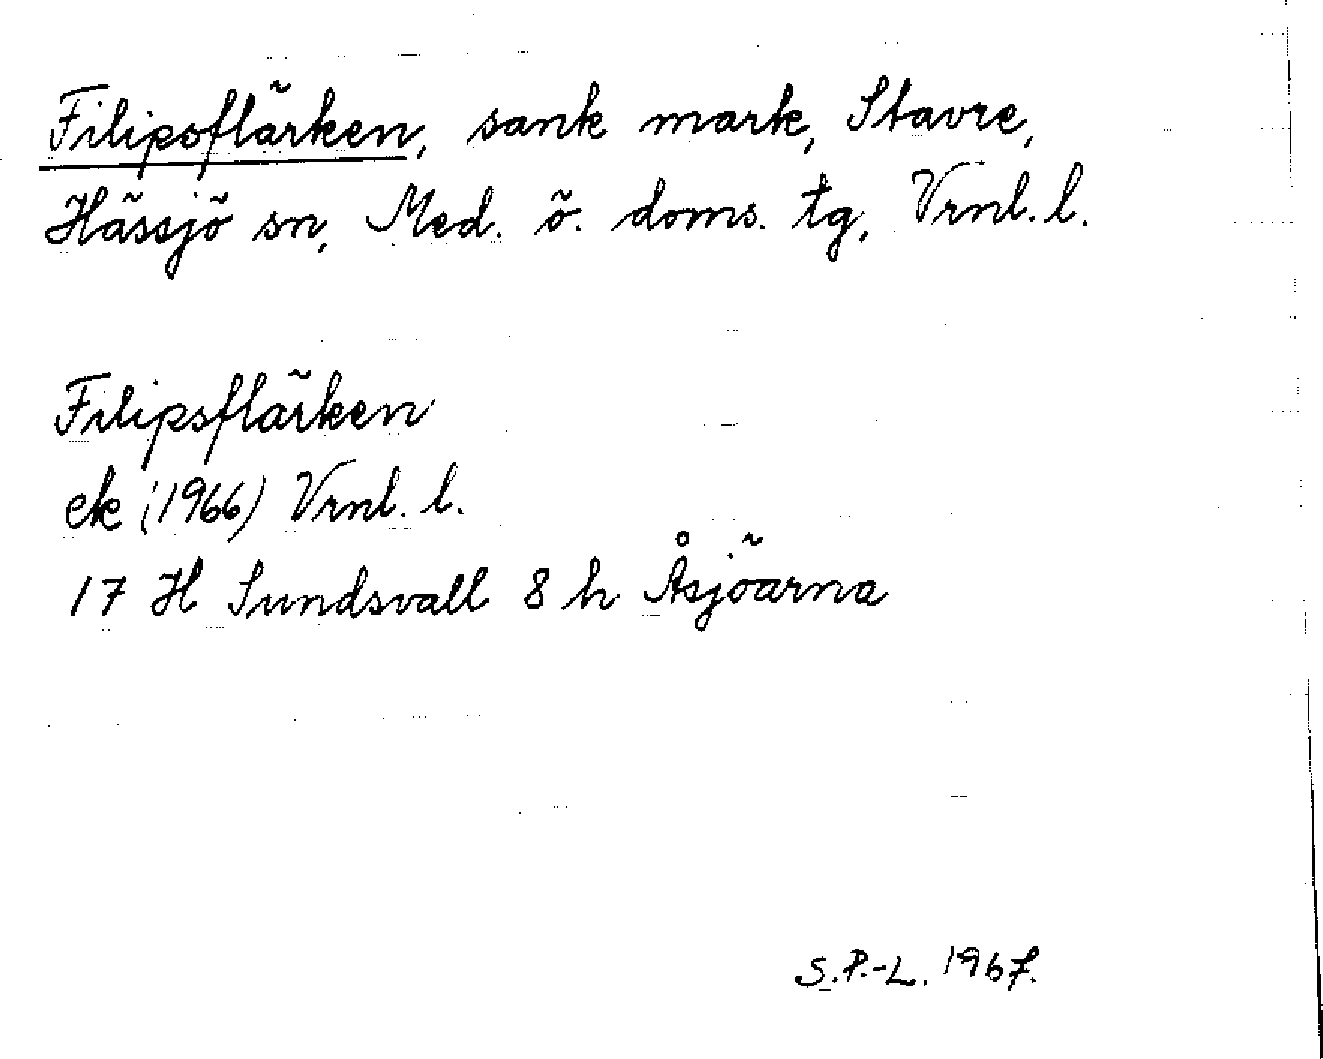 Filipsflärken, sank mark, Stavre,
Hässjö sn, Med. ö. doms. tg, Vrnl. l.
Filipsflärken
ek (1966) Vrnl. l.
17 H Sundsvall 8 h Åsjöarna
S.P.-L. 1967.